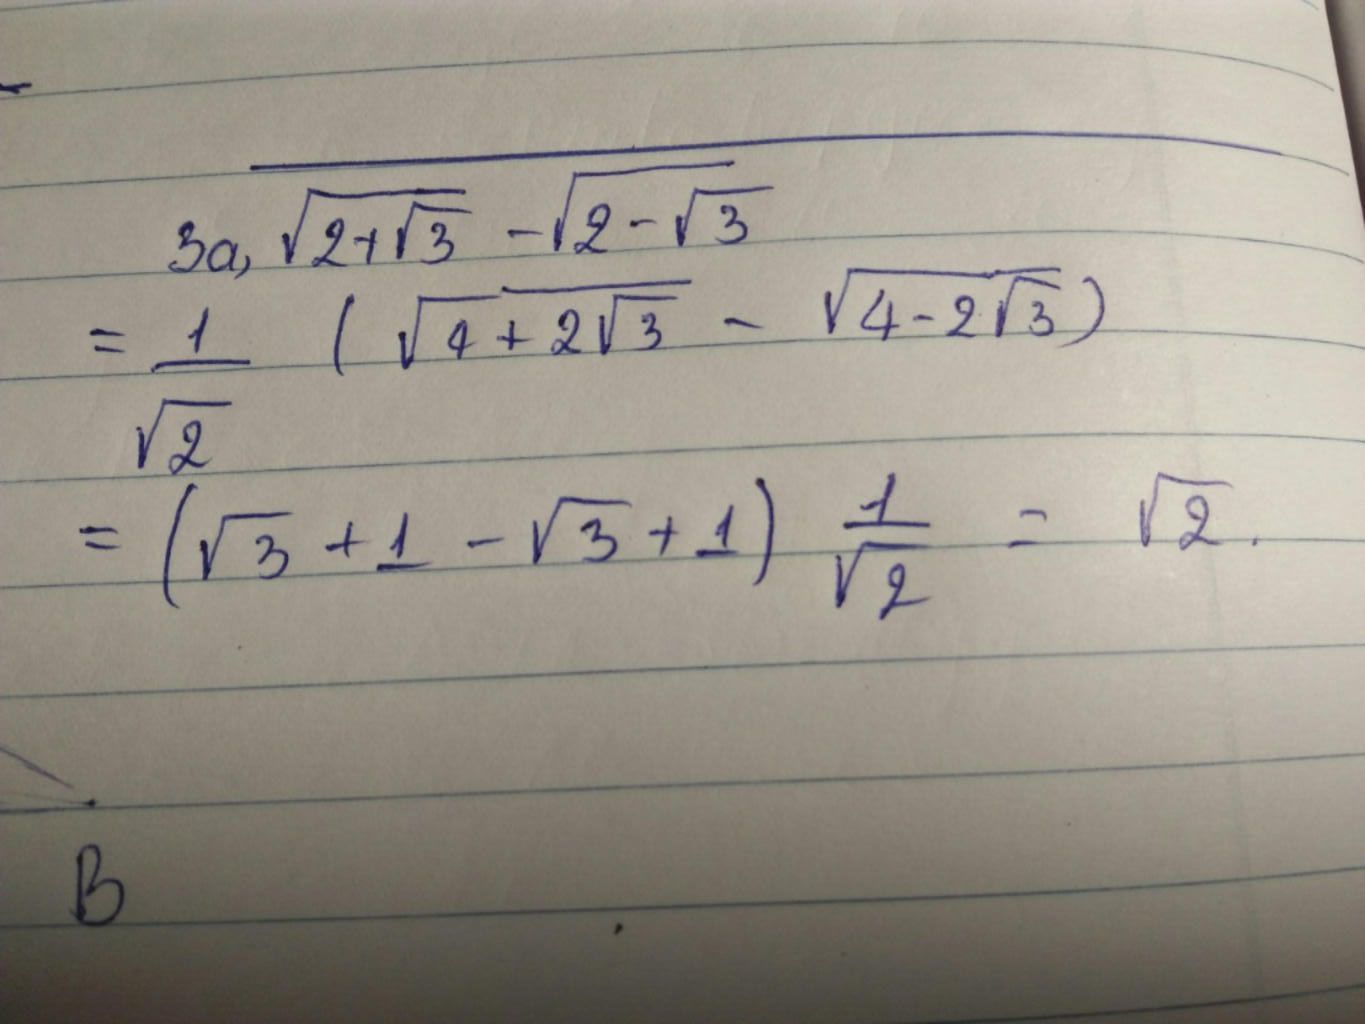 3a, √(2+√3) - √(2-√3)
= 1/√2 ( √(4+2√3) - √(4-2√3) )
= (√3 + 1 - √3 + 1) 1/√2 = √2.
B